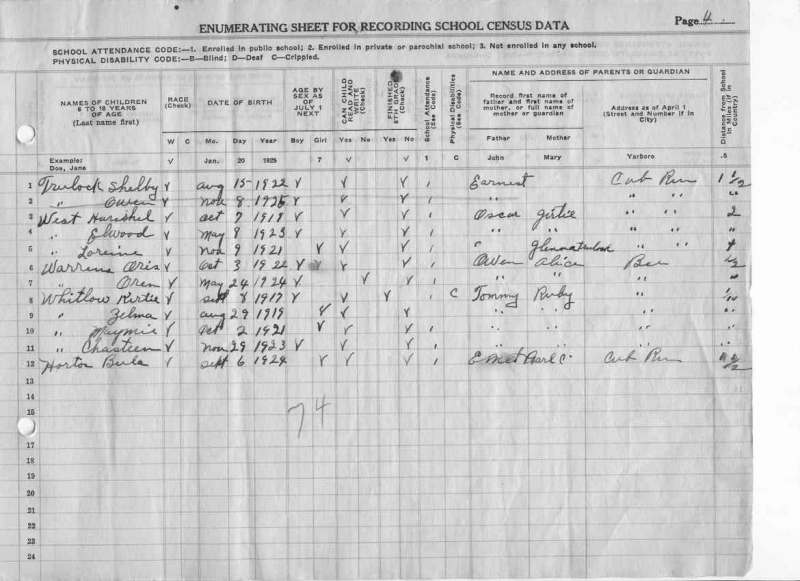 ENUMERATING SHEET FOR RECORDING SCHOOL CENSUS DATA Page 4
SCHOOL ATTENDANCE CODE:—1. Enrolled in public school; 2. Enrolled in private or parochial school; 3. Not enrolled in any school.
PHYSICAL DISABILITY CODE:—B—Blind; D—Deaf C—Crippled.
NAMES OF CHILDREN 6 TO 18 YEARS OF AGE (Last name first)
RACE (Check)
W C
DATE OF BIRTH
Mo. Day Year
AGE BY SEX AS OF JULY 1 NEXT
Boy Girl
CAN CHILD READ AND WRITE (Check)
Yes No
FINISHED 8TH GRADE (Check)
Yes No
School Attendance (See Code)
Physical Disabilities (See Code)
NAME AND ADDRESS OF PARENTS OR GUARDIAN
Record first name of father and first name of mother, or full name of mother or guardian
Father Mother
Address as of April 1 (Street and Number if in City)
Distance from School in Miles (if in Country)
Example: Doe, Jane √ Jan. 20 1925 7 √ √ 1 C John Mary Yarboro .5
1 Trulock Shelby √ Aug 15 1922 √ √ √ 1 Earnest Cub Run 1 1/2
2 " Owen √ Nov 8 1925 √ √ √ 1 " " " "
3 West Hurshel √ Oct 7 1918 √ √ √ 1 Oscar Girtie " " 2
4 " Elwood √ May 8 1923 √ √ √ 1 " " " " "
5 " Loreine √ Nov 9 1921 √ √ √ 1 " " "
6 Warrens Oris √ Oct 3 1922 √ √ √ 1 Owen Alice Bee 1/2
7 " Oren √ May 24 1924 √ √ √ 1 " " " "
8 Whitlow Kertie √ Sept 8 1917 √ √ √ C Tommy Ruby " "
9 " Zelma √ Aug 29 1919 √ √ √ " " " "
10 " Maymie √ Oct 2 1921 √ √ √ 1 " " " "
11 " Chasteen √ Nov 29 1923 √ √ √ 1 " " " "
12 Horton Bula √ Sept 6 1924 √ √ √ 1 Emet Pearl C. Cub Run
13
14
15
74
17
18
19
20
21
22
23
24